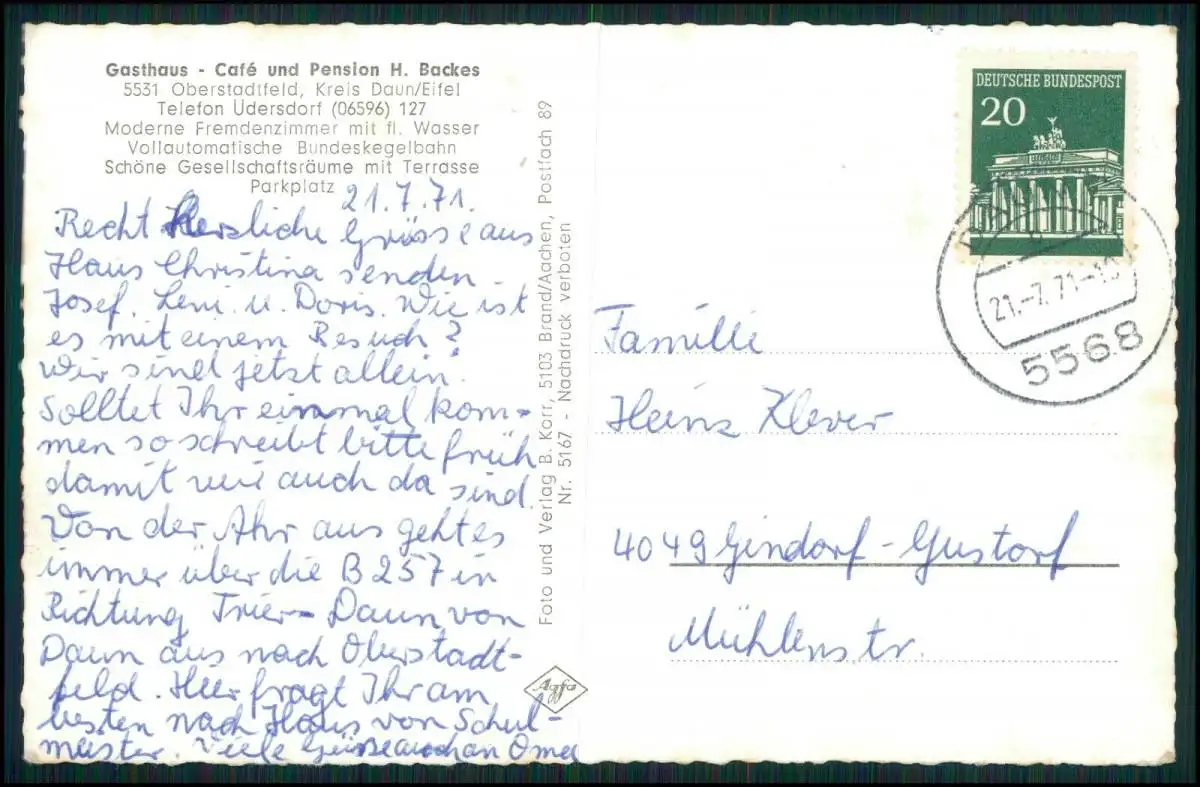 Gasthaus - Café und Pension H. Backes
5531 Oberstadtfeld, Kreis Daun/Eifel
Telefon Üdersdorf (06596) 127
Moderne Fremdenzimmer mit fl. Wasser
Vollautomatische Bundeskegelbahn
Schöne Gesellschaftsräume mit Terrasse
Parkplatz
21.7.71.
Recht Herzliche Grüsse aus
Haus Christina senden
Josef. Leni u. Doris. Wie ist
es mit einem Besuch?
Wir sind jetzt allein.
Solltet Ihr einmal kom-
men so schreibt bitte früh
damit wir auch da sind.
Von der Ahr aus geht es
immer über die B 257 in
Richtung Trier - Daun von
Daun aus nach Oberstadt-
feld. Hier fragt Ihr am
besten nach Haus von Schul-
meister. Viele Grüsse auch an Oma
Foto und Verlag B. Korr, 5103 Brand/Aachen, Postfach 89
Nr. 5167 - Nachdruck verboten
Agfa
DEUTSCHE BUNDESPOST
20
21.-7.71-
5568
Familie
Heinz Klever
4049 Gindorf - Gustorf
Mühlenstr.